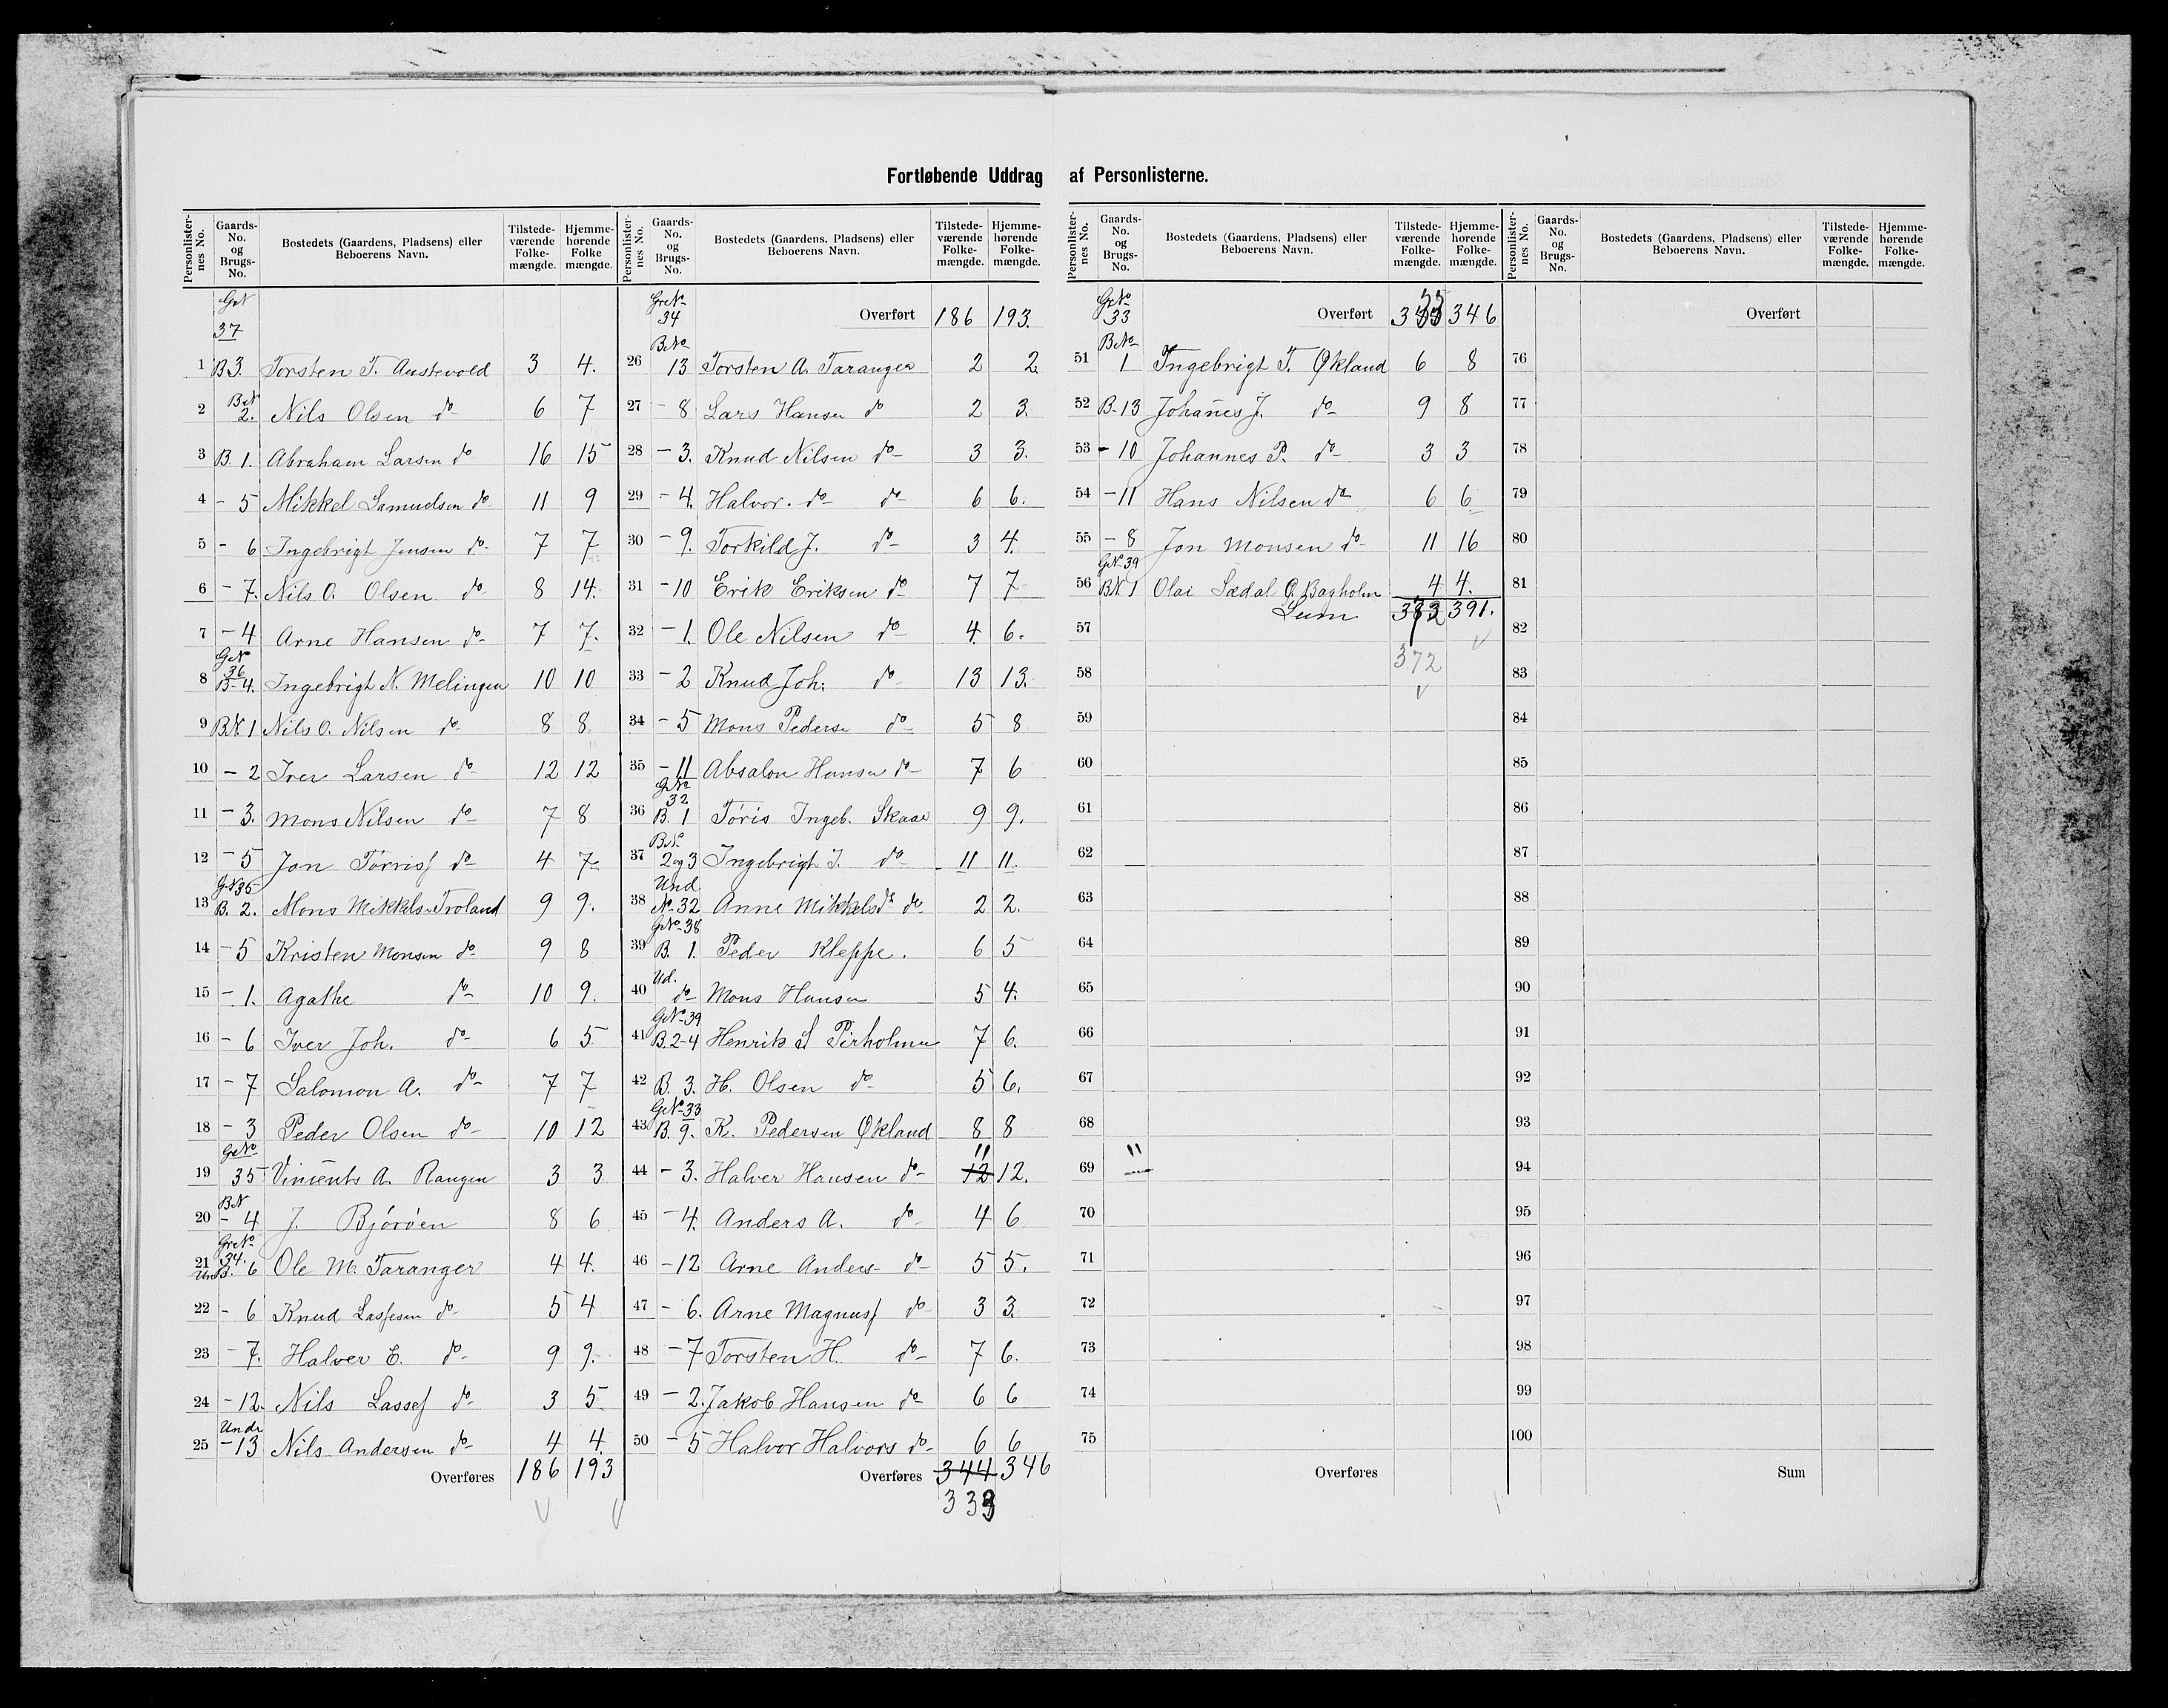 Fortløbende Uddrag af Personlisterne.
Personlister-nes No. | Gaards-No. og Brugs-No. | Bostedets (Gaardens, Pladsens) eller Beboerens Navn. | Tilstede-værende Folke-mængde. | Hjemme-hørende Folke mængde.
GN 37
1 B 3. Torsten T. Austevold 3 4.
2 BN 2. Nils Olsen do 6 7
3 B. 1. Abraham Larsen do 16 15
4 - 5 Mikkel Samuelsen do 11 9
5 - 6 Ingebrigt Jensen do 7 7
6 - 7. Nils O. Olsen do 8 14.
7 - 4 Arne Hansen do 7 7.
8 GNo 36 B-4. Ingebrigt N. Melingen 10 10
9 BN 1 Nils O. Nilsen do 8 8
10 - 2 Iver Larsen do 12 12
11 - 3. Mons Nilsen do 7 8
12 - 5 Jon Tørris do 4 7
13 GN 35 B. 2. Mons Mikkels. Troland 9 9.
14 - 5 Kristen Monsen do 9 8
15 - 1. Agathe do 10 9.
16 - 6 Iver Joh. do 6 5
17 - 7 Salomon A. do 7 7
18 - 3 Peder Olsen do 10 12
19 GNo 35 Vincents A. Rangen 3 3
20 BN - 4 J. Bjørøen 8 6
21 GrNo 34. Und B. 6 Ole M. Taranger 4 4.
22 - 6 Knud Lassesen do 5 4
23 - 7. Halver E. do 9 9.
24 - 12. Nils Lasses do 3 5
25 Undr - 13 Nils Andersen do 4 4.
Overføres 186 193
Personlister-nes No. | Gaards-No. og Brugs-No. | Bostedets (Gaardens, Pladsens) eller Beboerens Navn. | Tilstede-værende Folke-mængde. | Hjemme-hørende Folke-mængde.
GrNo 34 Overført 186 193.
26 BNo 13 Torsten A. Taranger 2 2
27 - 8 Lars Hansen do 2 3.
28 - 3. Knud Nilsen do 3 3.
29 - 4. Halvor. do do 6 6.
30 - 9. Torkild J. do 3 4.
31 - 10 Erik Eriksen do 7 7
32 - 1. Ole Nilsen do 4 6.
33 - 2 Knud Joh. do 13 13.
34 - 5 Mons Pederse do 5 8
35 - 11 Absalon Hansen do 7 6
36 GNo 32 B. 1 Tøris Ingeb. Skaar 9 9.
37 BN. 2 og 3 Ingebrigt I. do 11 11.
38 Und No 32 Anne Mikkelsdr do 2 2.
39 GNo 38 B. 1. Peder Kleppe. 6 5
40 Ud. do Mons Hansen 5 4.
41 GNo 39 B. 2-4 Henrik S. Pirholmen 7 6.
42 B. 3. H. Olsen do 5 6.
43 GNo 33 B. 9. K. Pedersen Økland 8 8
44 - 3. Halver Hansen do 12 11 12.
45 - 4. Anders A. do 4 6
46 - 12 Arne Anders do 5 5.
47 - 6. Arne Magnus do 3 3.
48 - 7 Torsten H. do 7 6.
49 - 2. Jakob Hansen do 6 6
50 - 5 Halvor Halvors do 6 6
Overføres 344 346
333
Personlister-nes No. | Gaards-No. og Brugs-No. | Bostedets (Gaardens, Pladsens) eller Beboerens Navn. | Tilstede-værende Folke-mængde. | Hjemme-hørende Folke-mængde.
GrNo 33 Overført 333 346
51 BNo 1 Ingebrigt T. Økland 6 8
52 B. 13 Johañes J. do 9 8
53 - 10 Johannes P. do 3 3
54 - 11 Hans Nilsen do 6 6
55 - 8 Jon Monsen do 11 16
56 GN. 39 BN 1 Olai Sædal Ø. Bagholm 4 4.
Sum 372 391.
57
372
58
59
60
61
62
63
64
65
66
67
68
69 "
70
71
72
73
74
75
Overføres
Personlister-nes No. | Gaards-No. og Brugs-No. | Bostedets (Gaardens, Pladsens) eller Beboerens Navn. | Tilstede-værende Folke-mængde. | Hjemme-hørende Folke-mængde.
Overført
76
77
78
79
80
81
82
83
84
85
86
87
88
89
90
91
92
93
94
95
96
97
98
99
100
Sum